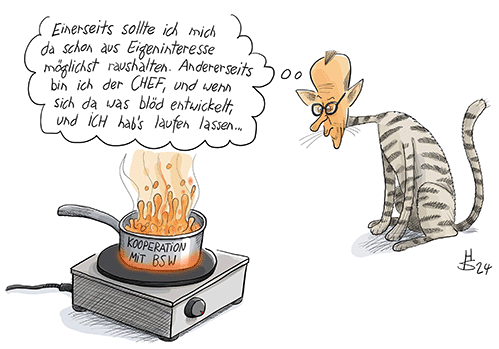 Einerseits sollte ich mich
da schon aus Eigeninteresse
möglichst raushalten. Andererseits
bin ich der CHEF, und wenn
sich da was blöd entwickelt,
und ICH hab's laufen lassen...
KOOPERATION
MIT BSW
HB 24